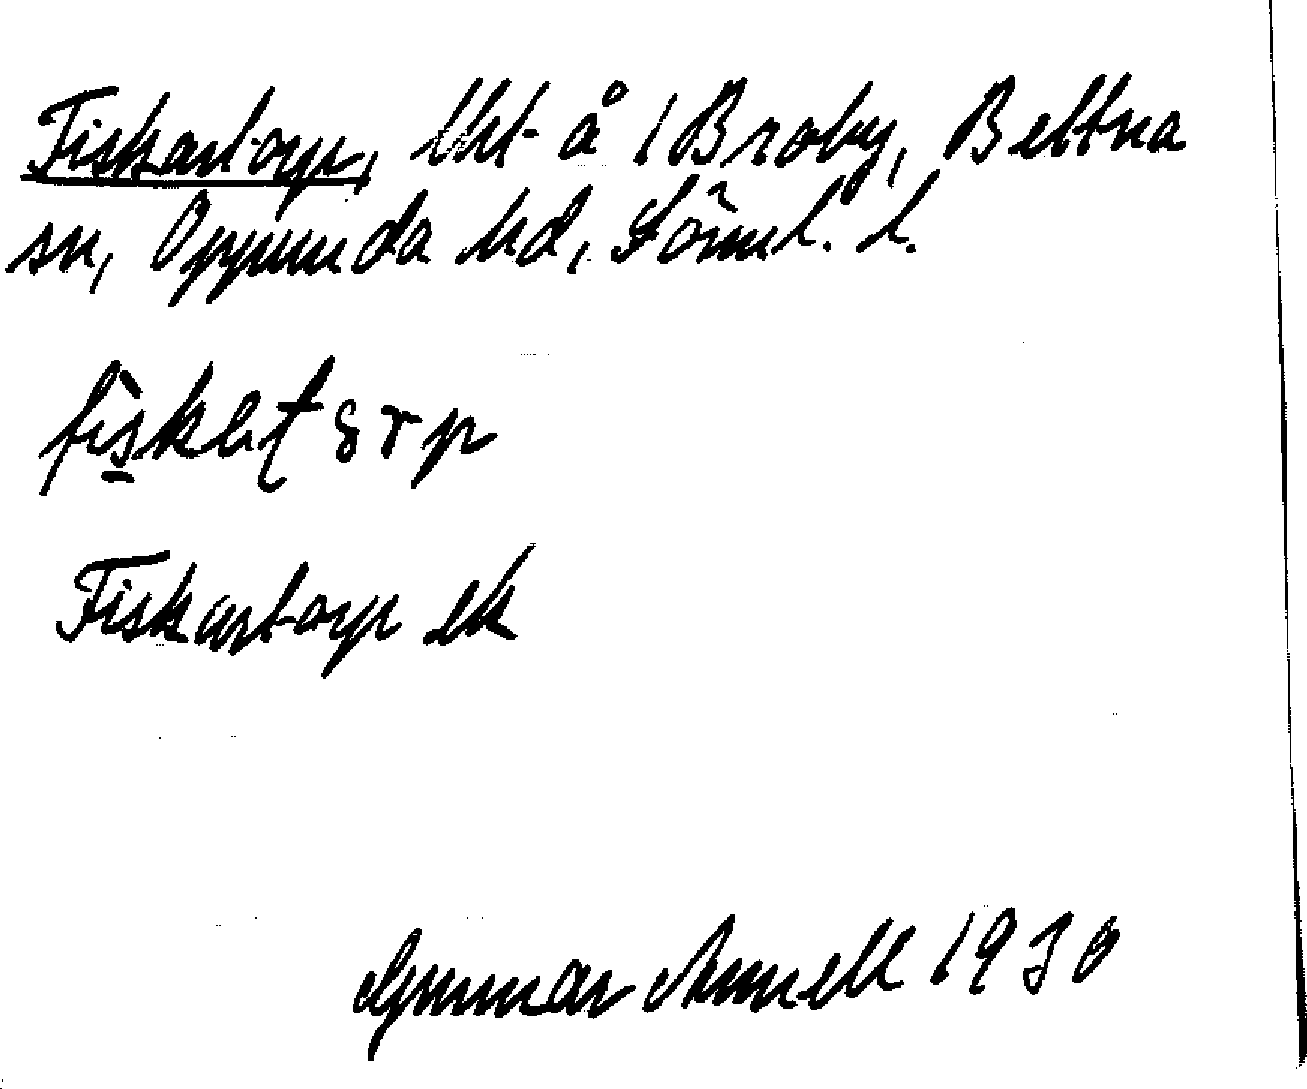 Fiskartorp, lht å 1 Broby, Bettna
sn, Oppunda hd, Sörml. l.
Fiskartorp ek
Gunnar Annell 1930